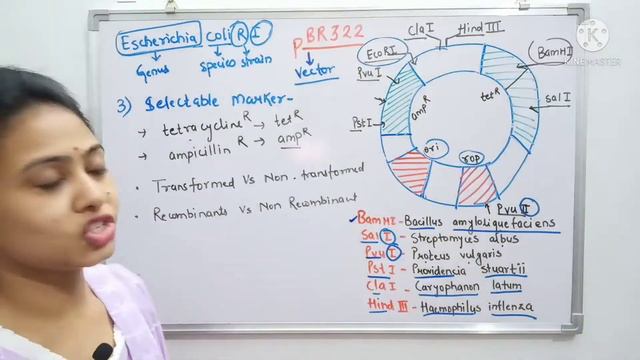 Escherichia coli R I
Genus species strain
pBR322
Vector
3) Selectable marker-
→ tetracycline R → tet R
→ ampicillin R → amp R
• Transformed Vs Non-transformed
• Recombinants vs Non Recombinant
Cla I Hind III
EcoRI BamHI
Pvu I
Pst I
amp R tet R
Sal I
ori rop
Pvu II
BamHI - Bacillus amyloliquefaciens
Sal I - Streptomyces albus
Pvu I - Proteus vulgaris
Pst I - Providencia stuartii
Cla I - Caryophanon latum
Hind III - Haemophilus inflenza
KINEMASTER